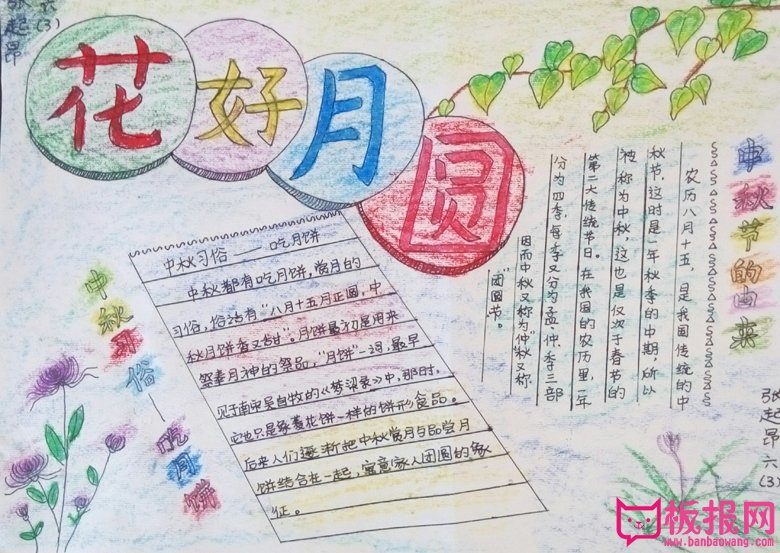 张起昂
六(3)
花好月圆
中秋节的由来
农历八月十五,是我国传统的中
秋节,这时是一年秋季的中期,所以
被称为中秋,这也是仅次于春节的
第二大传统节日。在我国的农历里,一年
分为四季,每季又分为孟、仲、季三部
因而中秋又称为"仲"秋又称
"团圆节"。
中秋习俗——吃月饼
中秋习俗——吃月饼
中秋都有吃月饼,赏月的
习俗,俗话有"八月十五月正圆,中
秋月饼香又甜"。月饼最初是用来
祭奉月神的祭品,"月饼"一词,最早
见于南宋吴自牧的《梦梁录》中,那时,
它也只是象菱花饼一样的饼形食品。
后来人们逐渐把中秋赏月与品尝月
饼结合在一起,寓意家人团圆的象
征。
张起昂 六(3)
板报网
www.banbaowang.com